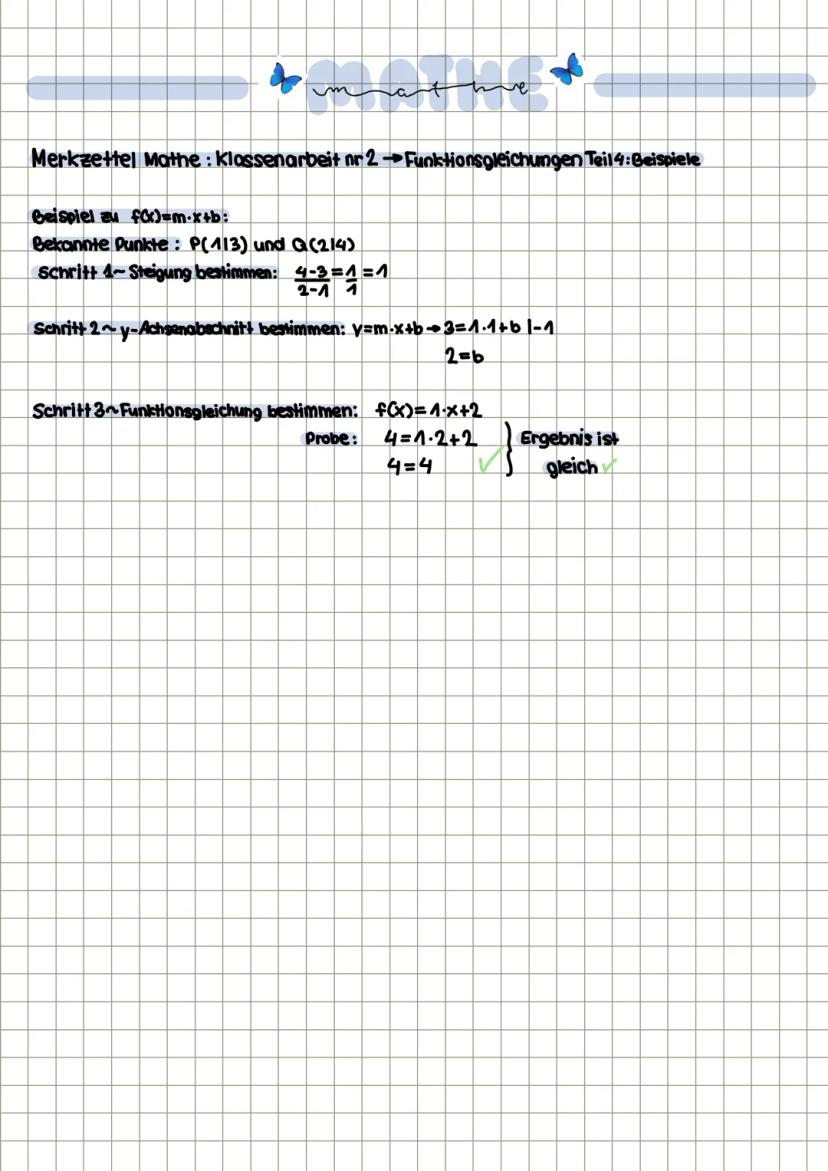 MATHE
mathe
Merkzettel Mathe : Klassenarbeit nr 2 → Funktionsgleichungen Teil 4: Beispiele
Beispiel zu f(x)=m·x+b:
Bekannte Punkte : P(1|3) und Q(2|4)
Schritt 1~ Steigung bestimmen: 4-3/2-1 = 1/1 = 1
Schritt 2~ y-Achsenabschnitt bestimmen: y=m·x+b → 3=1·1+b |-1
2=b
Schritt 3~ Funktionsgleichung bestimmen: f(x)=1·x+2
Probe: 4=1·2+2 } Ergebnis ist
4=4 ✓ gleich ✓